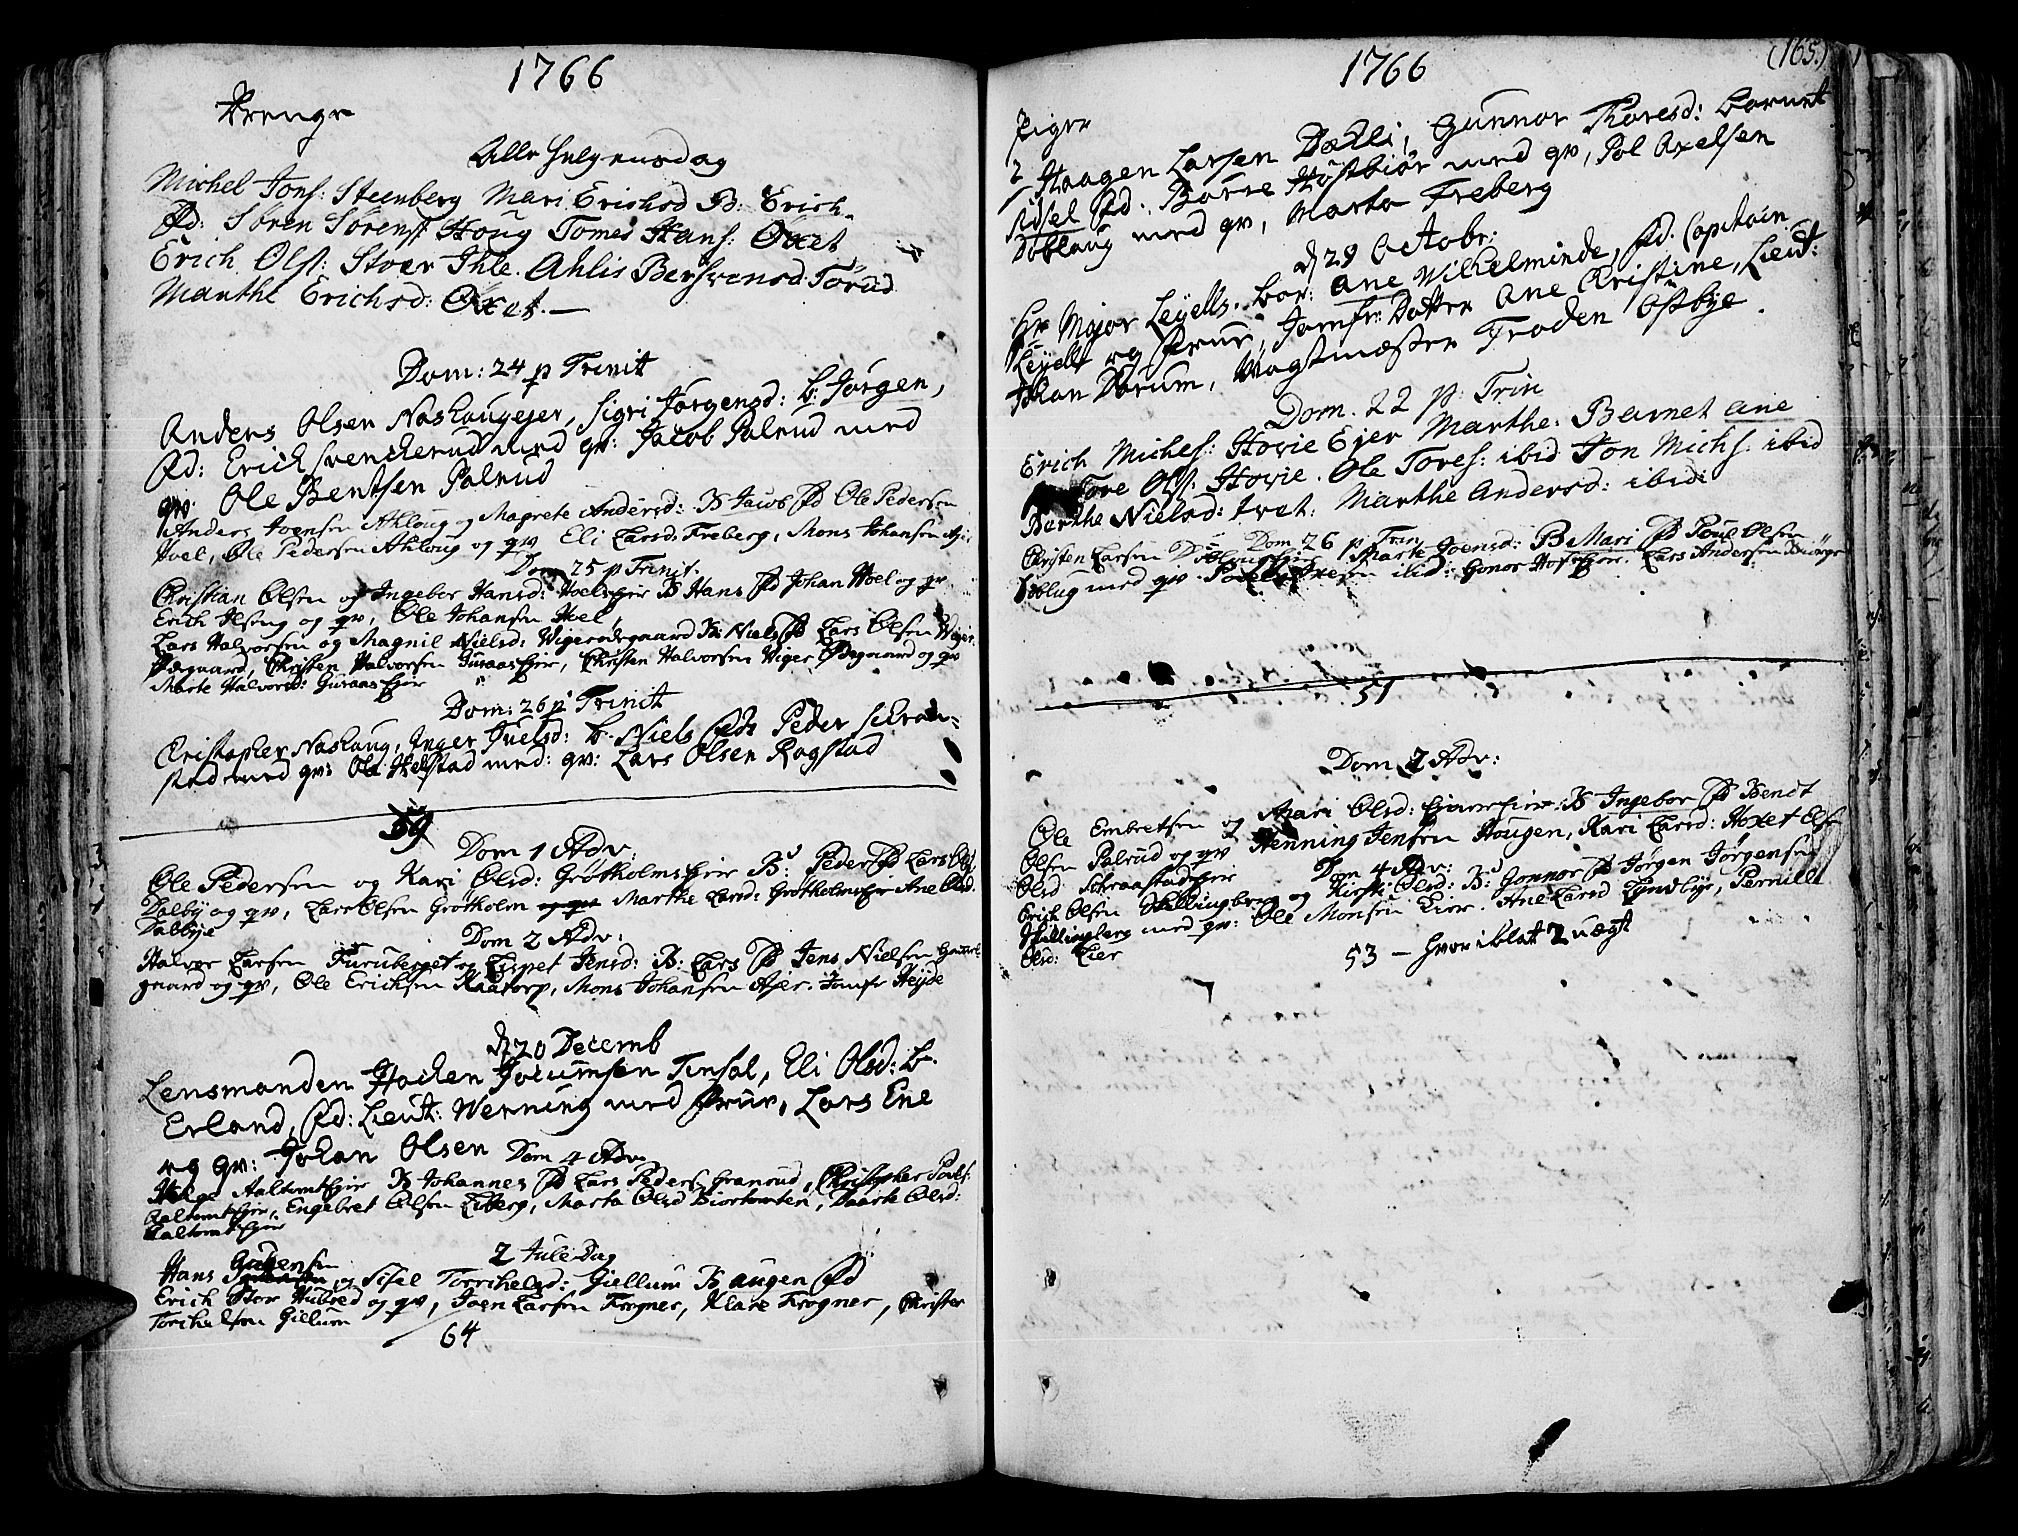 1766
Drenge
Alle Helgensdag
Michel Jons: Steenberg Mari Erichsd B: Erich
Fd: Søren Sørens Houg Tomes Hans: Oxet
Erich Ols: Stoer Ihle. Ahlis Bersvensd: Torud
Marthe Erichsd: Oxet.
Dom: 24 p Trinit
Anders Olsen Naskaugejer, Sigri Jørgensd: b: Jørgen,
Fd: Erich Svenckerud med qv: Jacob Palrud med
qv: Ole Bentsen Palrud
Anders Joensen Ahloug og Magrete Andersd: B Jacob Fd Ole Pedersen
Hoel, Ole Pedersen Ahloug og qv Eli Larsd: Freberg, Mons Johansen
Dom 25 p Trinit.
Christian Olsen og Ingebor Hansd: Hoelsejer B Hans Fd Johan Hoel og qv
Erich Ilseng og qv, Ole Johansen Hoel,
Lars Halvorsen og Magnil Nielsd: Wigerødegaard B: Niels Fd Lars Olsen Wiger
Ødegaard, Christen Halvorsen Guraasejer, Christen Halvorsen Wiger Ødegaard og qv
Marte Halvorsd: Guraasejer
Dom: 26 p Trinit
Cristopher Naskaug, Inger Juelsd: b. Niels Fd: Peder Schraa-
stad med qv: Ole Helstad med: qv: Lars Olsen Rogstad
59
Dom 1 Adv:
Ole Pedersen og Kari Olsd: Grøtholmsejer B: Peder Fd Lars Ols
Dalby og qv, Lars Olsen Grøtholm og qv Marthe Larsd: Grøtholmejer Ane Olsd:
Dalbye
Dom 2 Adv:
Halvor Larsen Furuberget og Lispet Jensd: B: Lars Fd Jens Nielsen
gaard og qv, Ole Erichsen Kaatorp, Mons Johansen Ajer. Jomfr Heyde
d 20 Decemb
Lensmanden Hacken Jocumsen Tinsal, Eli Olsd: b.
Erland, Fd: Lieut: Werning med Frue, Lars Ene
og qv: Johan Olsen Dom 4 Adv:
Helge Aaltomtejer B Johannes Fd Lars Peders Granrud, Christopher Povels:
Aaltomtejer, Engebret Olsen Liberg, Marta Olsd Biortomten, Daarte Olsd:
Aaltomtejer
2 Jule-Dag
Hans Gulensen og Sisel Torrichelsd: Giellum B augen Fd
Erich Stor Hubred og qv, Joen Larsen Frogner, Klare Frogner, Christen
Torrichelsen Gillum
64
1766
(165.)
Piger
Haagen Larsen Dælli, Gunnor Thoresd: Barnet
Sidsel Fd: Børre Høstbiør med qv, Pol Axelsen
Doblaug med qv, Marta Freberg
d 29 Octobr:
Hr Major Leyells. bar: Ane Wilhelminde, Fd. Capitain
Leyell og Frue, Jomfr: Dotter Ane Kristine, Lieut:
Johan Dorum, Wagtmæster Troden Østbye.
Dom. 22 p Trin
Erich Miches: Hovie Ejer Marthe: Barnet ane
Tore Ols: Hovie. Ole Tores: ibid Jon Michs: ibid
Berthe Nielsd: Tvet: Marthe Andersd: ibid:
Dom 26 p Trin
Christen Larsen Marte Joensd: B Mari Fd Poul Olsen
Doblug med qv. ibid: Gonor Hofsejer. Lars Andersen
51
Dom 2 Adv:
Ole Embretsen og Mari Olsd: B Ingebor Fd Bendt
Olsen Palrud og qv Henning Jensen Hougen, Kari Larsd: Hoxet
Olsd Schraastadejer
Dom 4 Adv:
Erich Olsen Skillingberg og Kirsti Olsd: B: Gonnor Fd Jørgen Jørgensen
Skillingberg med qv: Ole Monsen Lier. Ane Larsd Lyndbye, Pernille
Olsd: Lier
53 - hvoriblat 2 uægt